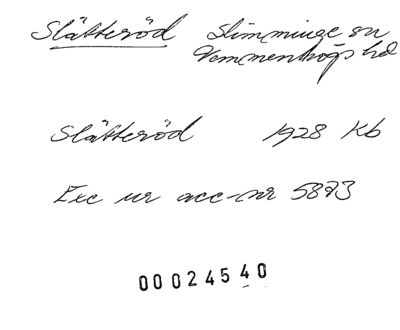 Slätteröd Slimminge sn
Vemmenhögs hd
Slätteröd 1928 Kb
Exc ur acc-nr 5873
00024540